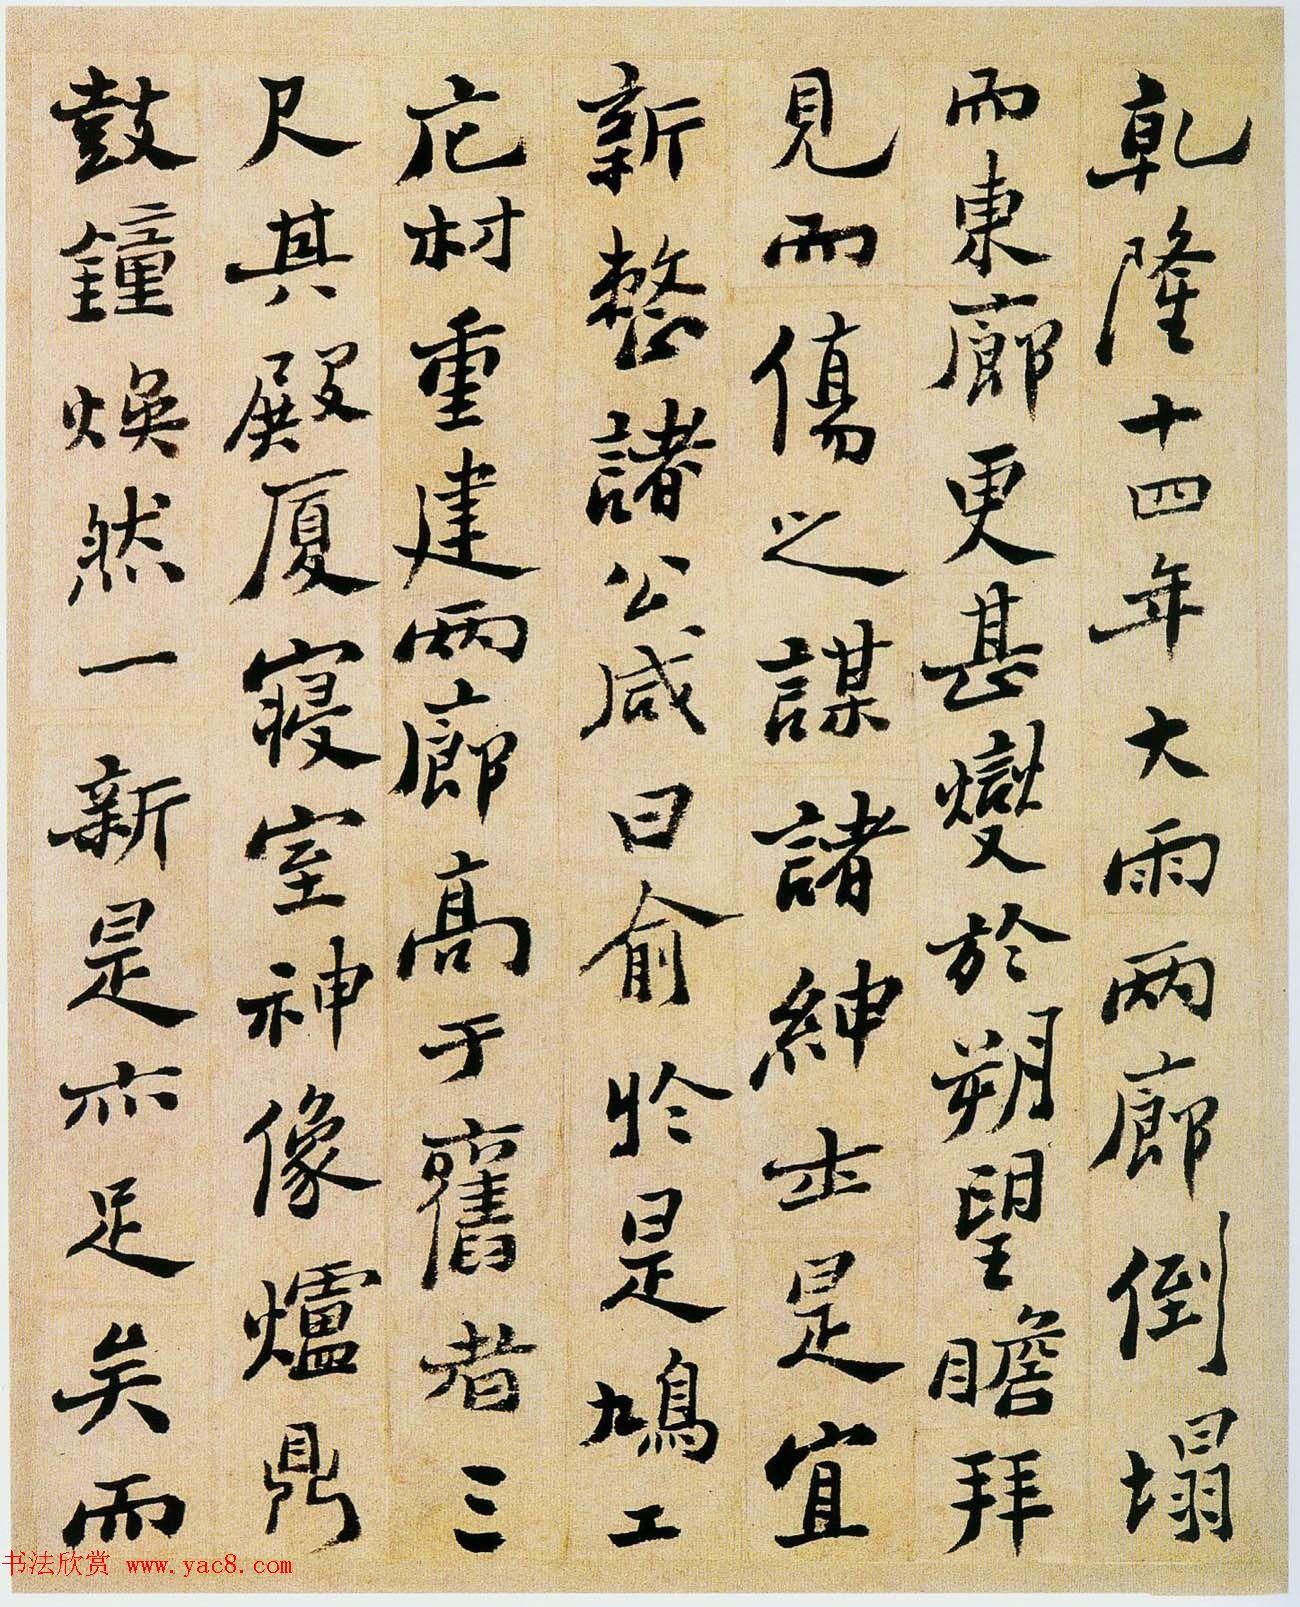 乾隆十四年大雨兩廊倒塌
而東廊更甚爕於朔望瞻拜
見而傷之謀諸紳士是宜
新整諸公咸曰俞於是鳩工
庀材重建兩廊高于舊者三
尺其殿厦寢室神像爐鼎
鼓鐘煥然一新是亦足矣而
书法欣赏 www.yac8.com